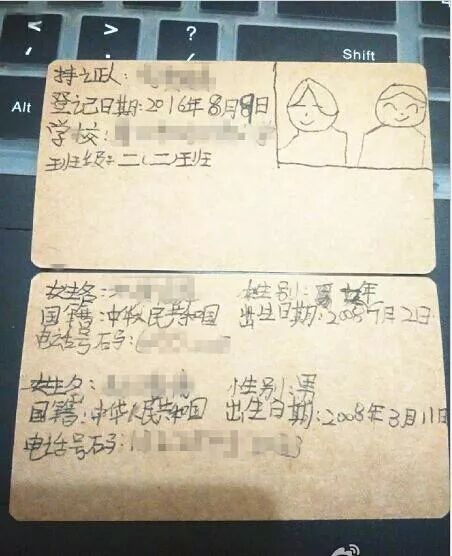 < > ?
, . /
Shift
Alt
持证人:
登记日期:2016年8月9日
学校:
班级:二(二)班
姓名: 性别:
国籍:中华人民共和国 出生日期:2008年7月2日
电话号码:
姓名: 性别:男
国籍:中华人民共和国 出生日期:2008年3月11日
电话号码: